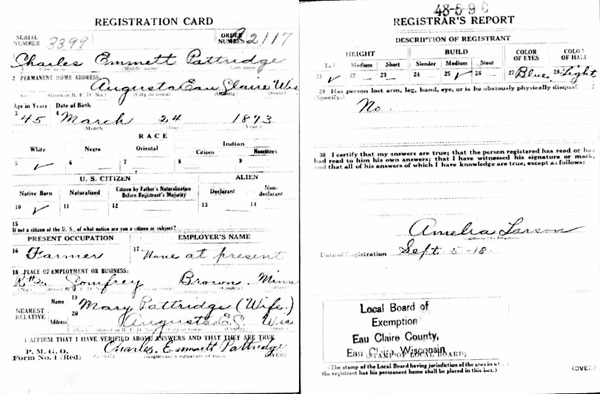 REGISTRATION CARD
SERIAL NUMBER 3399 ORDER NUMBER 2117
Charles Emmett Pattridge
2 PERMANENT HOME ADDRESS:
Augusta Eau Claire Wis
Age in Years Date of Birth
45 March 24 1873
RACE
White Negro Oriental Indian
Citizen
5 ✓ 6 7 8 9
U. S. CITIZEN ALIEN
Native Born Naturalized Citizen by Father's Naturalization Before Registrant's Majority Declarant Non-declarant
10 ✓ 11 12 13 14
15
If not a citizen of the U. S., of what nation are you a citizen or subject?
PRESENT OCCUPATION EMPLOYER'S NAME
16 Farmer 17 None at present
18 PLACE OF EMPLOYMENT OR BUSINESS:
Comfrey Brown Minn
NEAREST RELATIVE Name 19 Mary Pattridge (Wife)
Address 20 Augusta E.C. Wis
I AFFIRM THAT I HAVE VERIFIED ABOVE ANSWERS AND THAT THEY ARE TRUE
P. M. G. O.
Form No. 1 (Red) Charles Emmett Pattridge (OVER)
REGISTRAR'S REPORT
DESCRIPTION OF REGISTRANT
HEIGHT BUILD COLOR OF EYES COLOR OF HAIR
Tall Medium Short Slender Medium Stout
21 ✓ 22 23 24 25 ✓ 26 27 Blue 28 Light
29 Has person lost arm, leg, hand, eye, or is he obviously physically disqualified?
Specify:
No
30 I certify that my answers are true; that the person registered has read or has
had read to him his own answers; that I have witnessed his signature or mark,
and that all of his answers of which I have knowledge are true, except as follows:
Amelia Larson
Date of Registration Sept. 5-18
Local Board of
Exemption
Eau Claire County,
Eau Claire, Wisconsin
(STAMP OF LOCAL BOARD)
(The stamp of the Local Board having jurisdiction of the area in which
the registrant has his permanent home shall be placed in this box.)
(OVER)